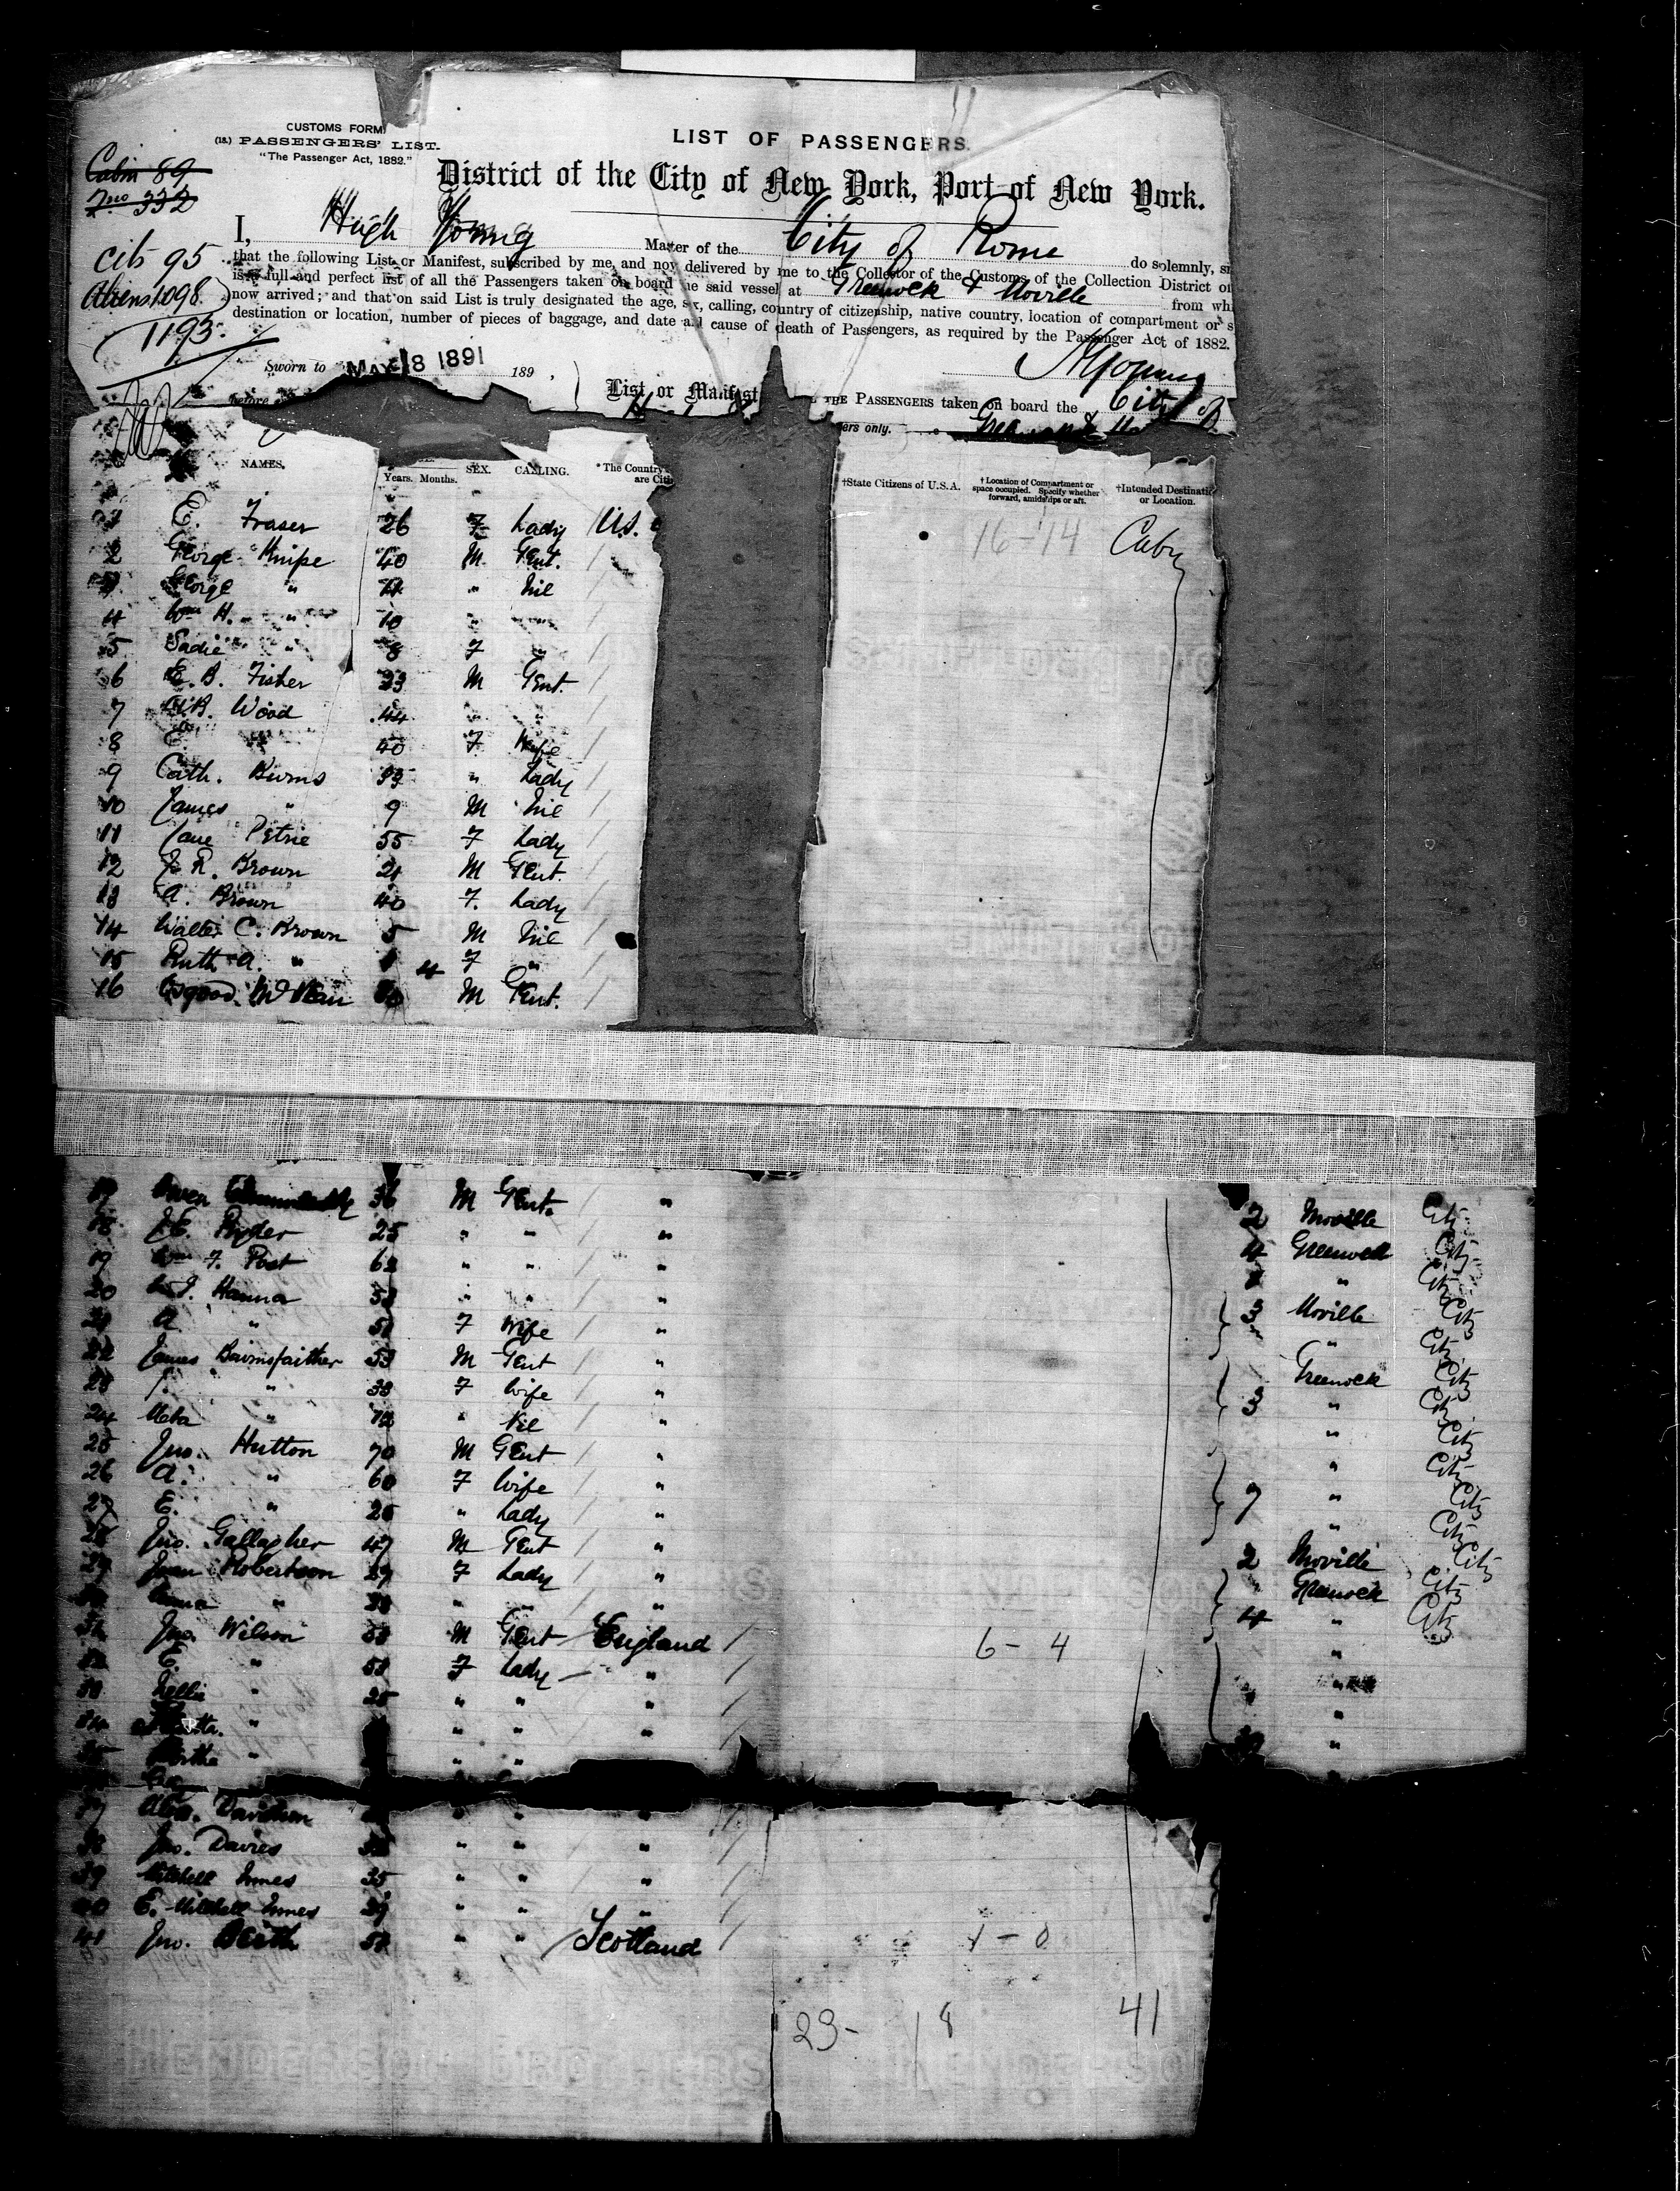 CUSTOMS FORM
(18.) PASSENGERS' LIST.
"The Passenger Act, 1882."
LIST OF PASSENGERS.
District of the City of New York, Port of New York.
Cabin 89
332
cits 95
Aliens 1098
1193
I, Hugh Young Master of the City of Rome do solemnly,
that the following List or Manifest, subscribed by me, and now delivered by me to the Collector of the Customs of the Collection District of
is a full and perfect list of all the Passengers taken on board the said vessel at Greenock & Moville from
now arrived; and that on said List is truly designated the age, sex, calling, country of citizenship, native country, location of compartment or
destination or location, number of pieces of baggage, and date and cause of death of Passengers, as required by the Passenger Act of 1882.
Sworn to MAY 18 1891 189 ,
HYoung
before
List or Manifest THE PASSENGERS taken on board the City of
ers only.
NAMES. Years. Months. SEX. CALLING. *The Country are †State Citizens of U.S.A. †Location of Compartment or space occupied. Specify whether forward, amidships or aft. †Intended Destination or Location.
1 E. Fraser 26 F Lady U.S. 16-14
2 George Knipe 40 M Gent.
3 George " 11 " Nil
4 Wm H. " 10 " "
5 Sadie " 8 F "
6 E. B. Fisher 23 M Gent.
7 Wood 44 " "
8 E. " 40 F Wife
9 Cath. Burns 33 " Lady
10 James " 9 M Nil
11 Jane Petrie 55 F Lady
12 J. R. Brown 21 M Gent.
13 A. Brown 40 F. Lady
14 Walter C. Brown 5 M Nil
15 Ruth A. " 4 F "
16 Osgood M Gent.
17 Owen 36 M Gent. " 2 Moville City
18 J. E. Ryder 25 " " " 4 Greenock City
19 Wm F. Post 62 " " " " City
20 Hanna " " " 3 Moville City
21 A " F Wife " " City
22 James Bairnsfaither 53 M Gent " Greenock City
23 " 33 F Wife " 3 " City
24 Meta " 12 " Nil " " City
25 Jno. Hutton 70 M Gent " " City
26 A. " 60 F Wife " 7 " City
27 E. " " Lady " " City
28 Jno. Gallagher 47 M Gent " 2 Moville City
29 Jean Robertson 29 F Lady " Greenock City
30 " " " " 4 " City
31 Jno. Wilson M Gent England 6-4 "
32 E. " F Lady " "
33 Nellie " 25 " " " "
34 " " " " "
35 Bertha " " " "
37 Alex. Davidson " " "
38 Jno. Davies " " "
39 Mitchell Innes 35 " " "
40 E. Mitchell Innes 29 " " "
41 Jno. " " Scotland 1-0
23- 18 41